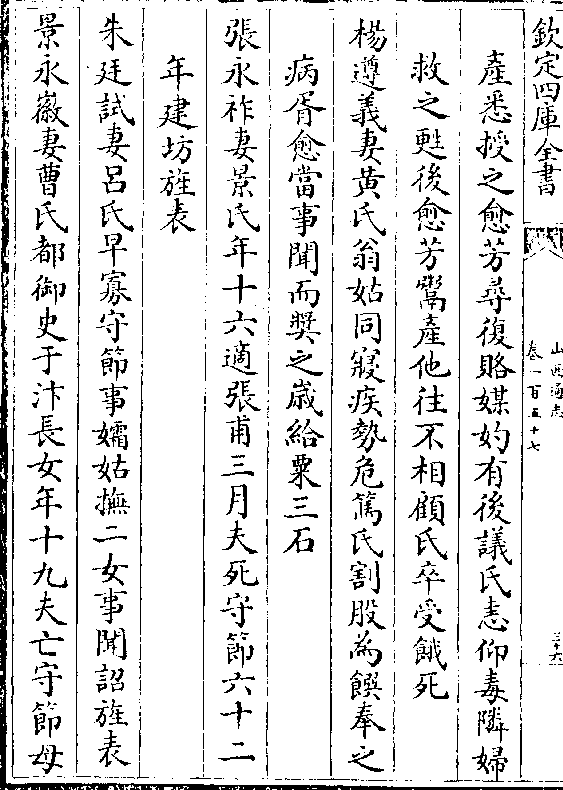 欽定四庫全書
山西通志
卷一百五十七
三十六
產悉授之愈芳尋復賂媒妁有後議氏恚仰毒隣婦
救之甦後愈芳鬻產他往不相顧氏卒受餓死
楊遵義妻黃氏翁姑同寢疾勢危篤氏割股為饌奉之
病胥愈當事聞而奬之歲給粟三石
張永祚妻景氏年十六適張甫三月夫死守節六十二
年建坊旌表
朱廷試妻呂氏早寡守節事孀姑撫二女事聞詔旌表
景永徽妻曹氏都御史于汴長女年十九夫亡守節母